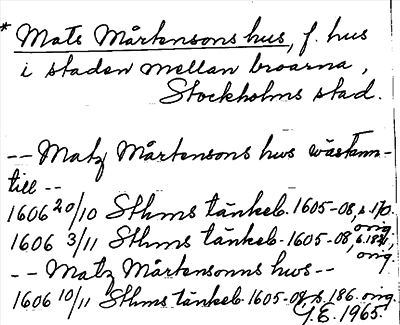 * Mats Mårtensons hus, f. hus
i staden mellan broarna,
Stockholms stad.
-- Matz Mårtensons hws wästann-
till --
1606 20/10 Sthms tänkeb. 1605-08, s. 170. orig.
1606 3/11 Sthms tänkeb. 1605-08, s. 182, orig.
-- Matz Mårtensonns hws --
1606 10/11 Sthms tänkeb. 1605-08, s. 186. orig.
G.E. 1965.